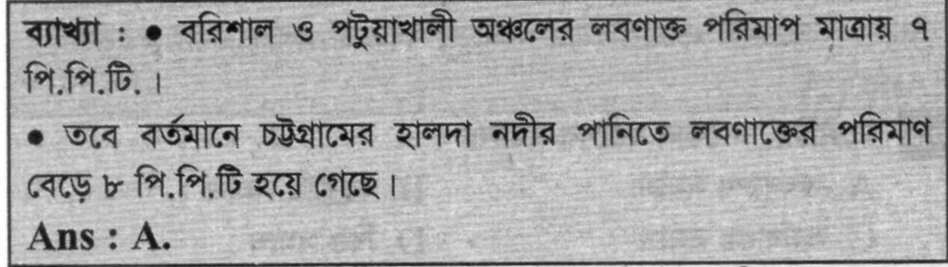 ব্যাখ্যা : ● বরিশাল ও পটুয়াখালী অঞ্চলের লবণাক্ত পরিমাপ মাত্রায় ৭
পি.পি.টি. ।
● তবে বর্তমানে চট্টগ্রামের হালদা নদীর পানিতে লবণাক্তের পরিমাণ
বেড়ে ৮ পি.পি.টি হয়ে গেছে ।
Ans : A.